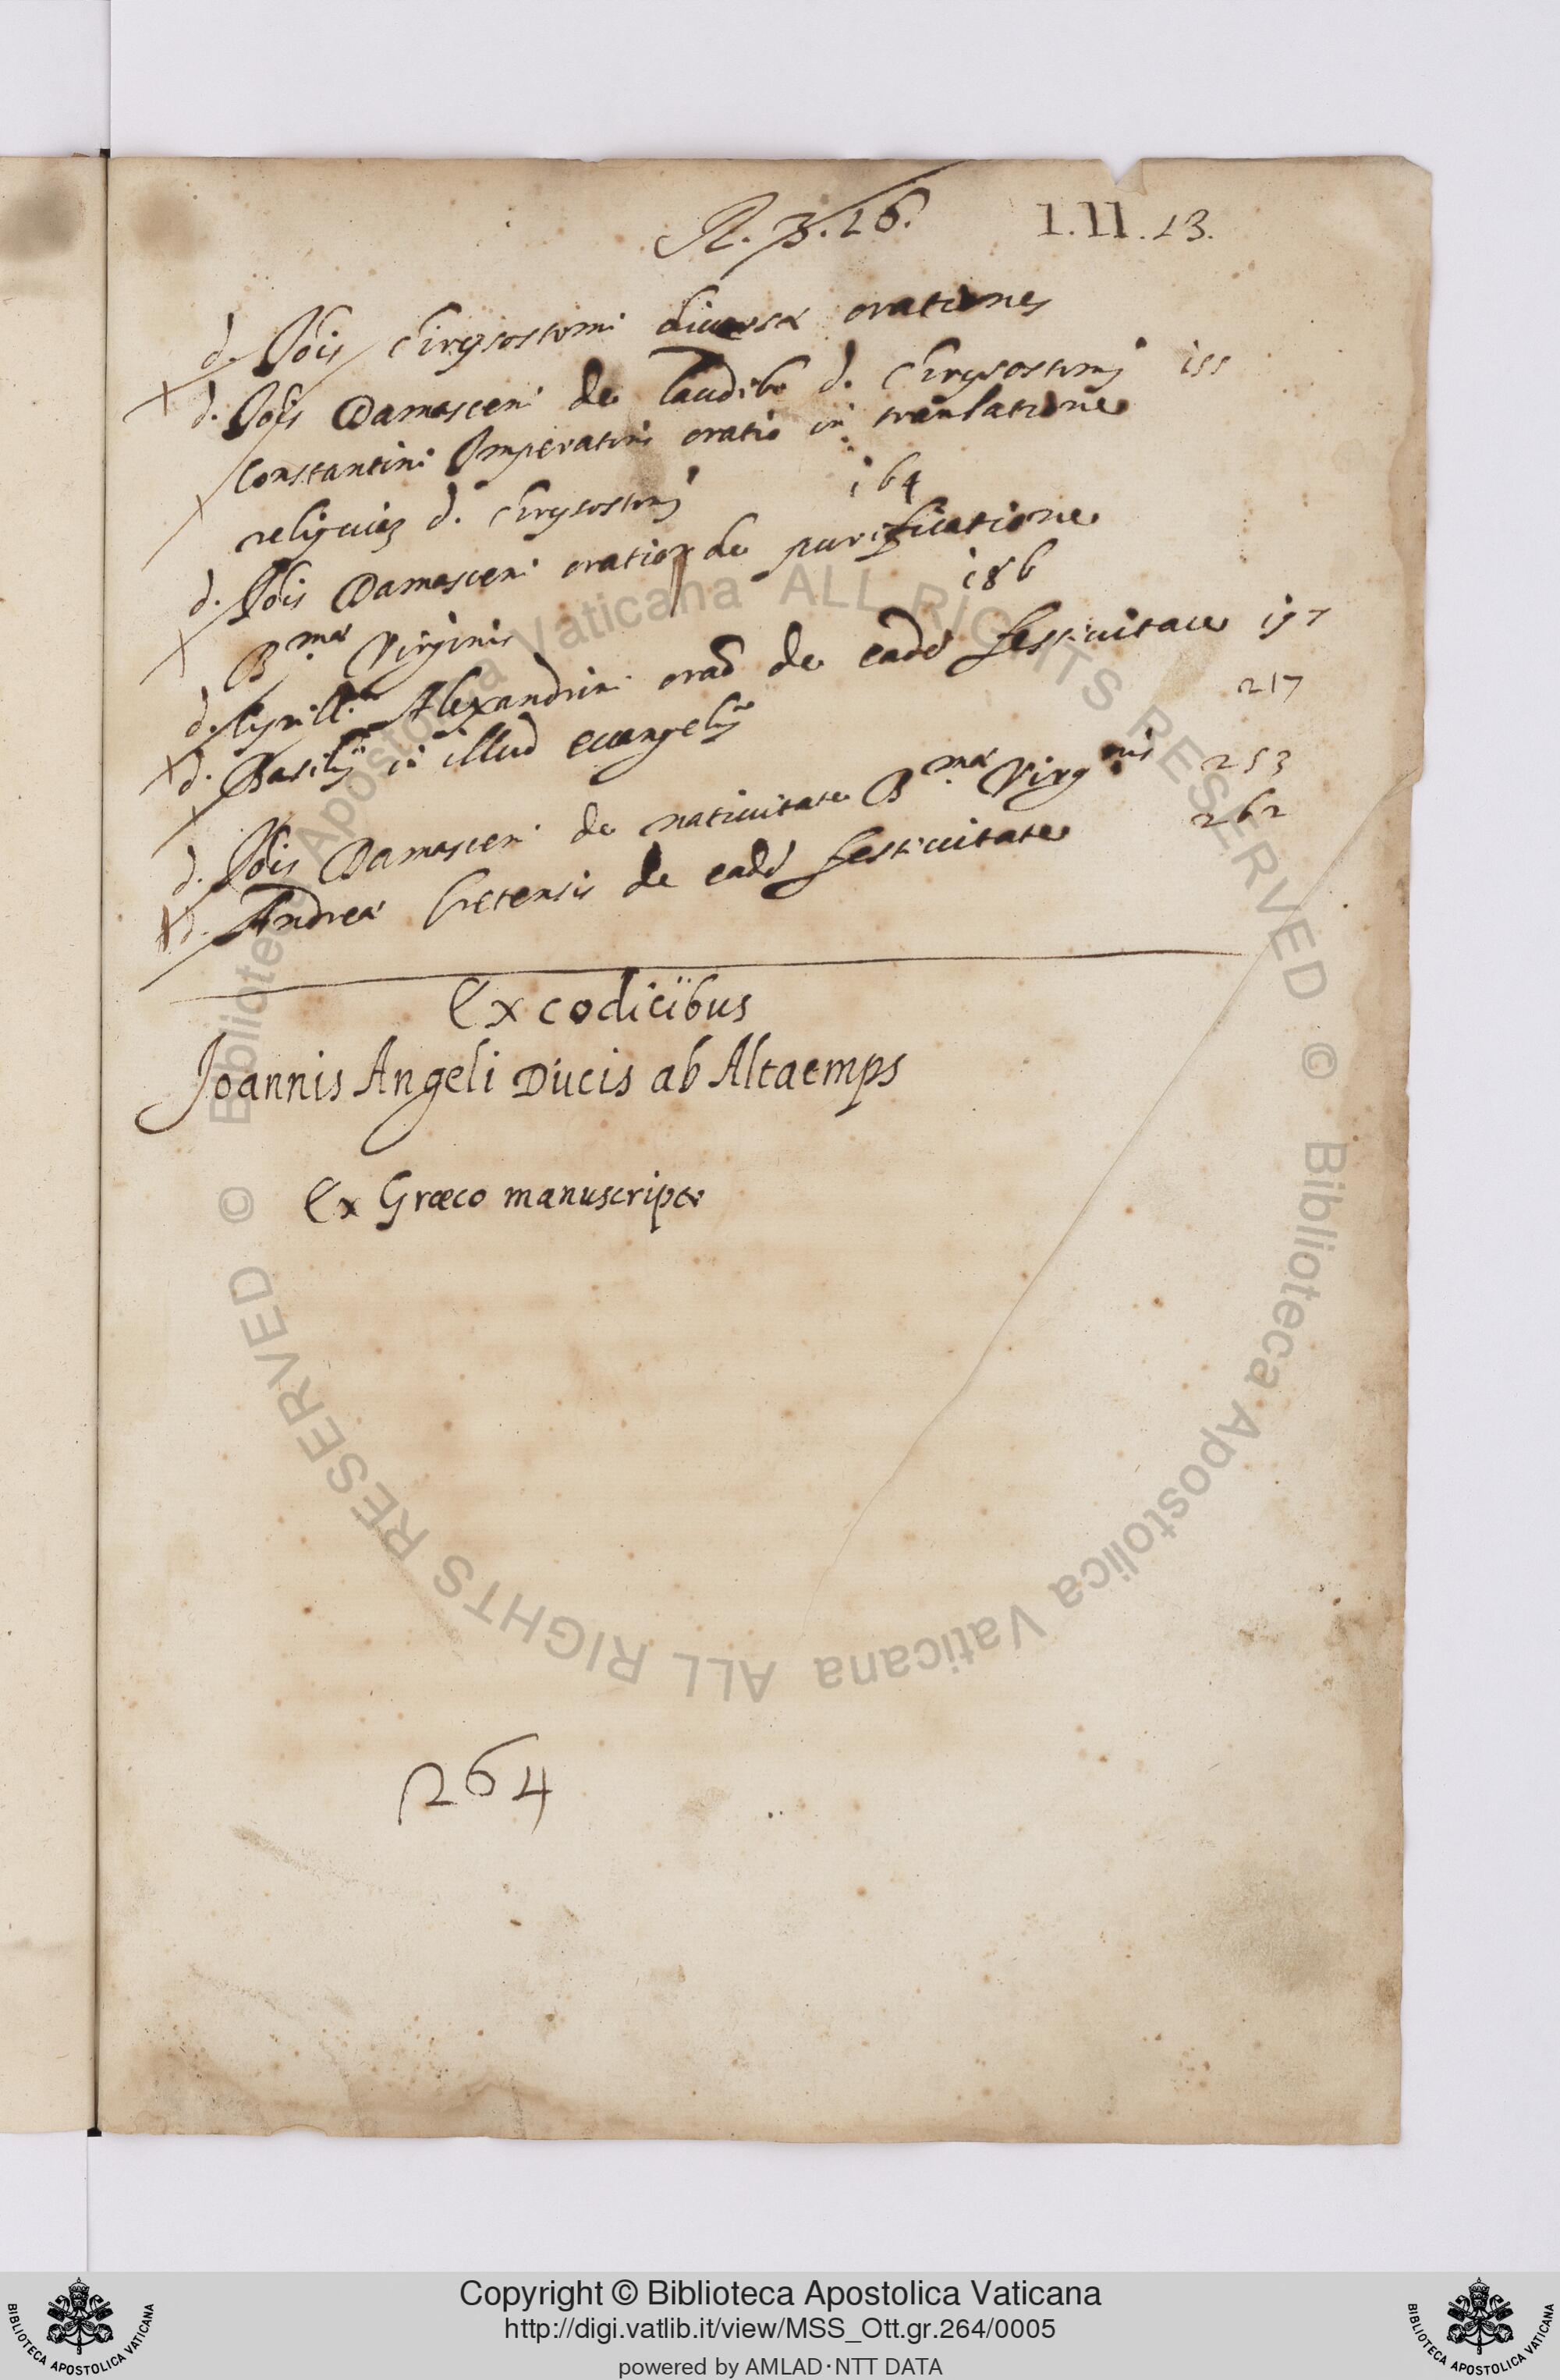 R. 3. 16. I. II. 13.
d. Jois Chrysostomi diversæ orationes
d. Jois Damasceni de laudibo d. Chrysostomi 155
Constantini Imperatoris oratio in translatione
reliquiaꝝ d. Chrysostomi 164
d. Jois Damasceni oratio de purificatione
B.mæ Virginis 186
d. Cyrilli Alexandrini orao de eade festivitate 197
d. Basilij in illud evangelij 217
d. Jois Damasceni de nativitate B.mæ Virginis 253
d. Andreæ Cretensis de eade festivitate 262
Ex codicibus
Joannis Angeli Ducis ab Altaemps
Ex Græco manuscripto
264
© Biblioteca Apostolica Vaticana ALL RIGHTS RESERVED © Biblioteca Apostolica Vaticana ALL RIGHTS RESERVED
Copyright © Biblioteca Apostolica Vaticana
http://digi.vatlib.it/view/MSS_Ott.gr.264/0005
powered by AMLAD·NTT DATA
BIBLIOTECA APOSTOLICA VATICANA
BIBLIOTECA APOSTOLICA VATICANA